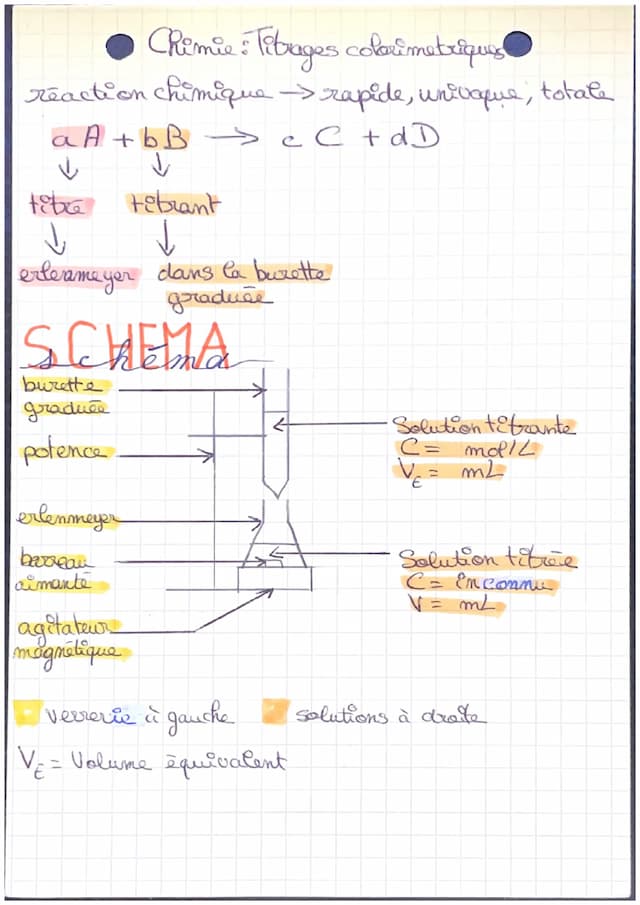 Chimie : Titrages colorimetriques
réaction chimique → rapide, univoque, totale
aA + bB → cC + dD
titré titrant
erlenmeyer dans la burette
graduée
SCHEMA
schéma
burette
graduée
Solution titrante
C = mol/L
potence
VE = mL
erlenmeyer
barreau
aimanté
Solution titrée
C = inconnu
V = mL
agitateur
magnétique
verrerie à gauche solutions à droite
VE = Volume équivalent